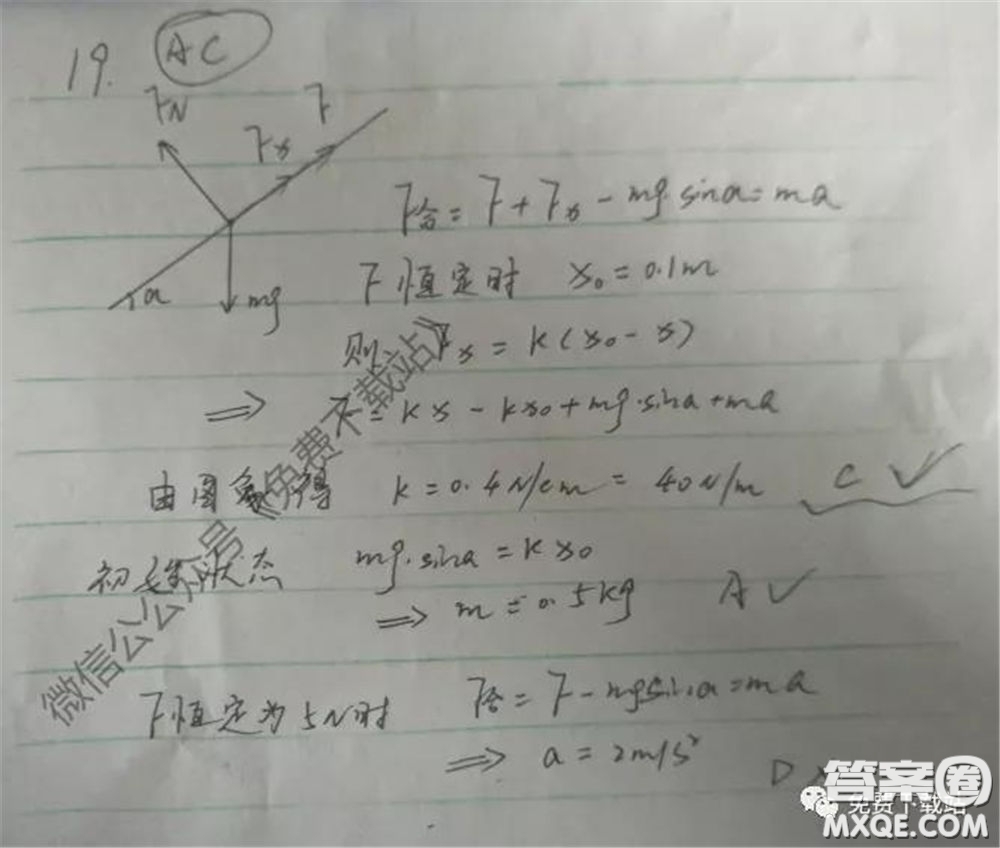 19. AC
FN Fx F
F合 = F + Fx - mg·sinα = ma
α mg
F恒定时 x₀ = 0.1m
则 Fx = k(x₀ - x)
⇒ F = kx - kx₀ + mg·sinα + ma
由图象得 k = 0.4N/cm = 40N/m C ✓
初始状态 mg·sinα = kx₀
⇒ m = 0.5kg A ✓
F恒定为5N时 F合 = F - mgsinα = ma
⇒ a = 2m/s² D ×
微信公众公众号《免费下载站》
免费下载站
答案圈
MXQE.COM